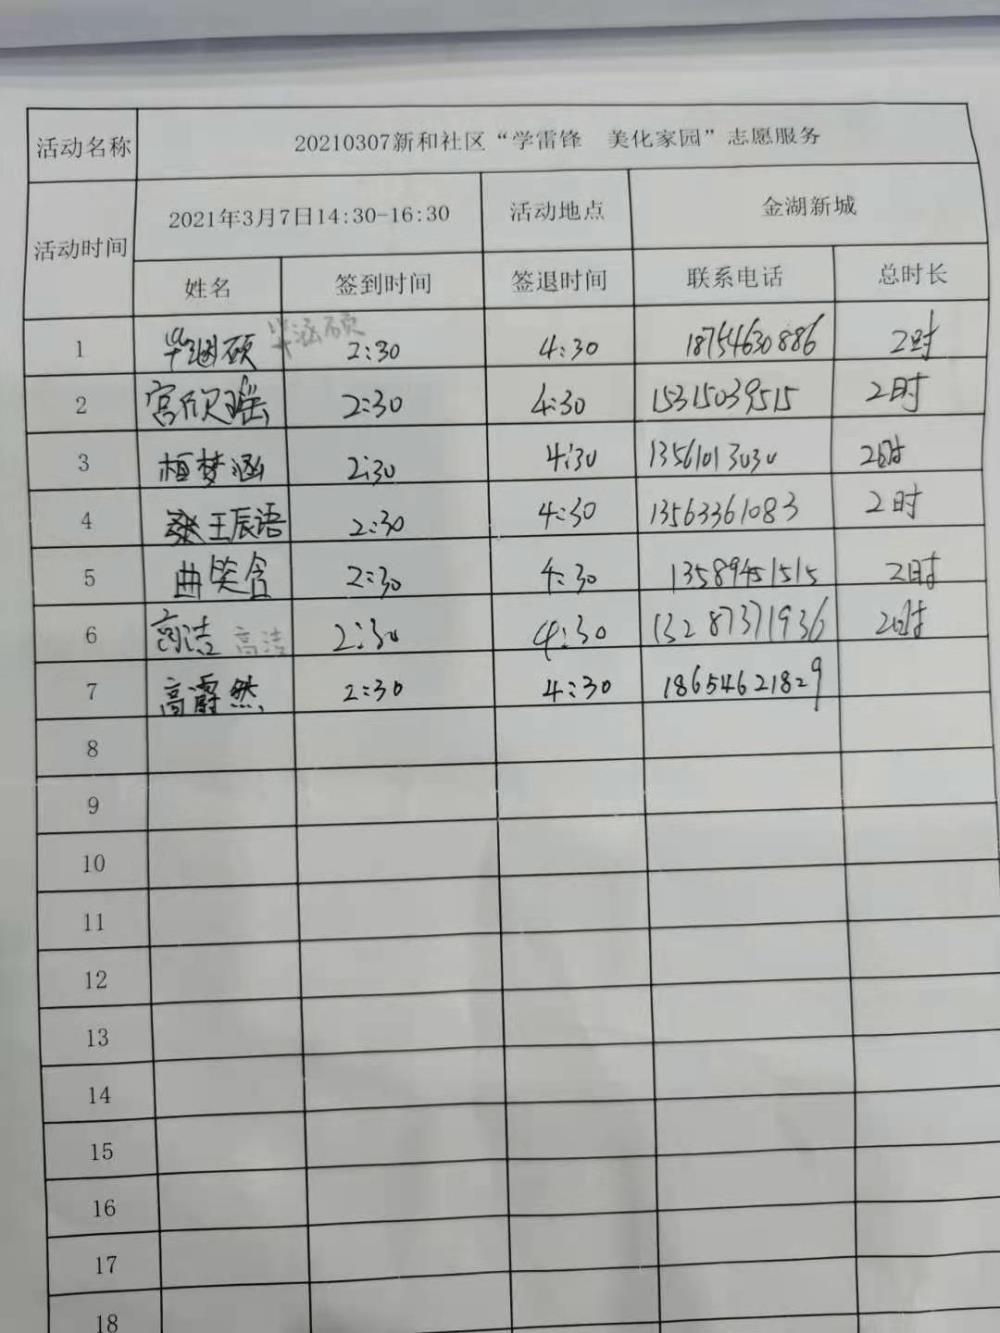 活动名称 20210307新和社区“学雷锋 美化家园”志愿服务
活动时间 2021年3月7日14:30-16:30 活动地点 金湖新城
姓名 签到时间 签退时间 联系电话 总时长
1 毕涵硕 毕涵硕 2:30 4:30 18754630886 2时
2 宫欣瑶 2:30 4:30 15315039515 2时
3 桓梦涵 2:30 4:30 13561013030 2时
4 王辰语 2:30 4:30 13563361083 2时
5 曲笑含 2:30 4:30 13589451515 2时
6 高洁 高洁 2:30 4:30 13287371936 2时
7 高霨然 2:30 4:30 18654621829
8
9
10
11
12
13
14
15
16
17
18